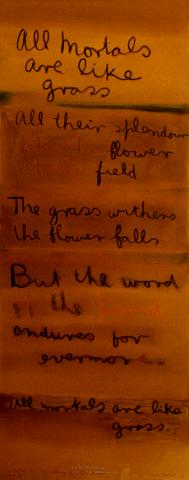 All mortals
are like
grass
All their splendour
flower
field
The grass withers
the flower falls
But the word
of the
endures for
evermore..
All mortals are like
grass.